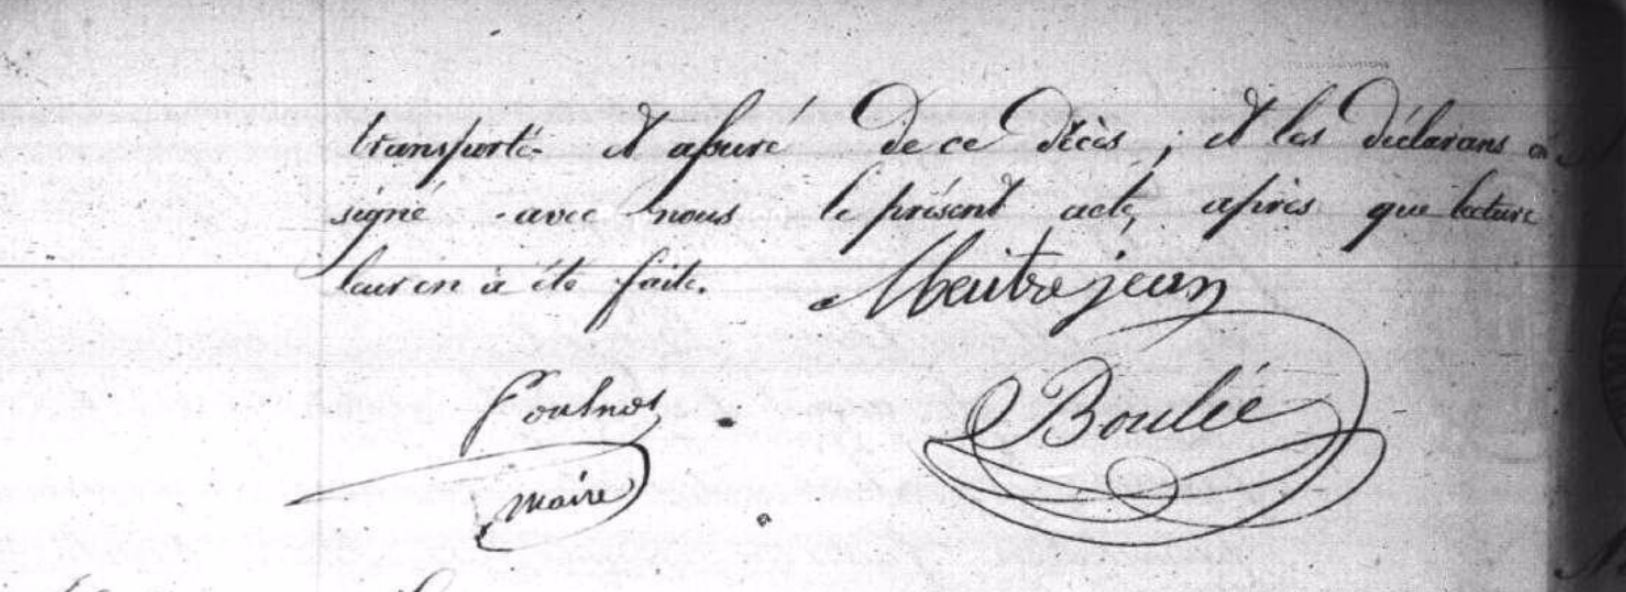 transporté et assuré de ce décès ; et les déclarans on
signé avec nous le présent acte, après que lecture
leur en à été faite. Meutrejean
Boulée
maire